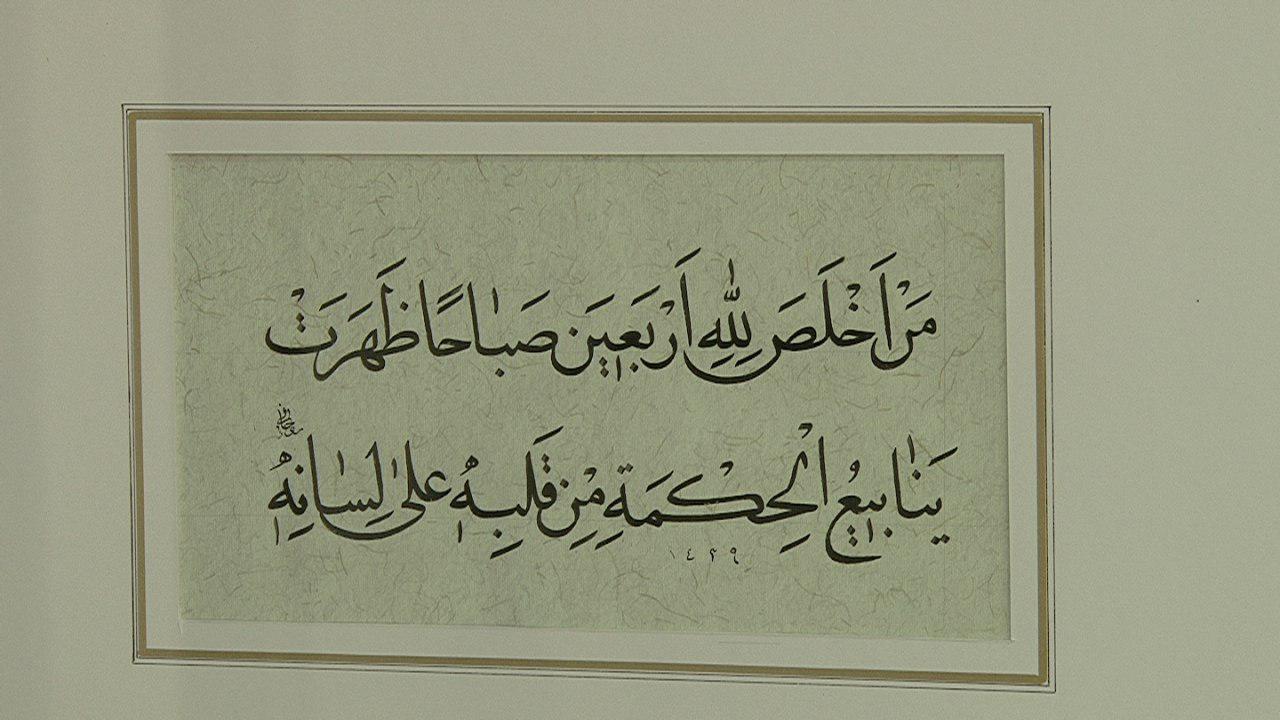 مَنْ اَخْلَصَ لِلّٰهِ اَرْبَعٖينَ صَبَاحًا ظَهَرَتْ
يَنَابٖيعُ الْحِكْمَةِ مِنْ قَلْبِهٖ عَلٰى لِسَانِهٖ
١٤٢٩